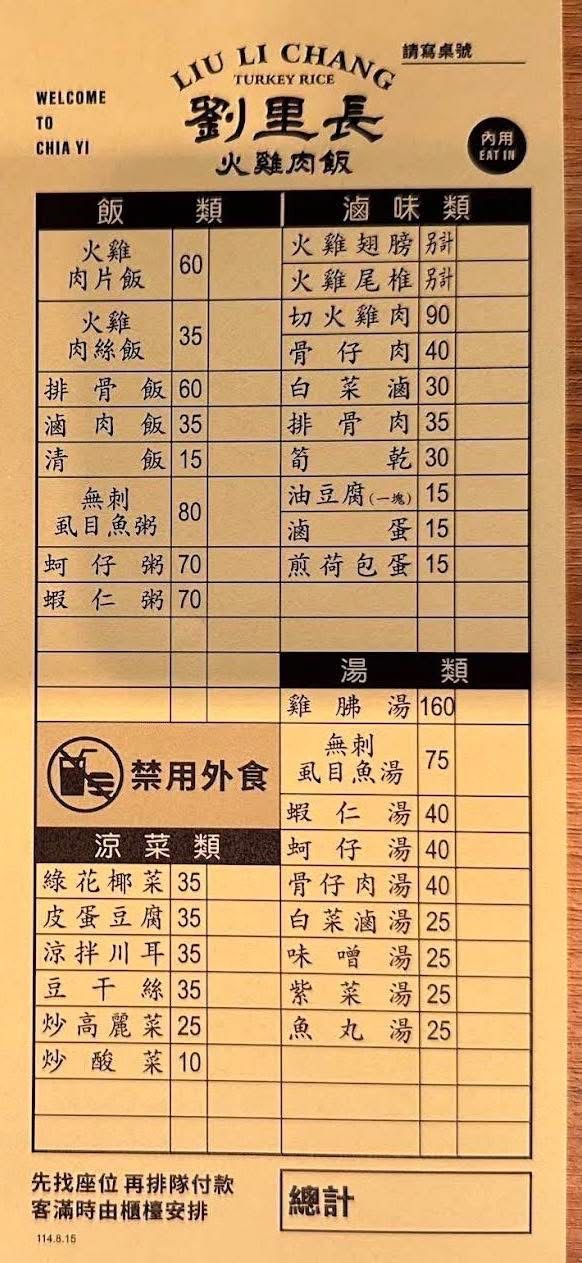 請寫桌號
LIU LI CHANG
TURKEY RICE
WELCOME
TO
CHIA YI
劉里長
火雞肉飯
內用
EAT IN
飯類
火雞
肉片飯 60
火雞
肉絲飯 35
排骨飯 60
滷肉飯 35
清飯 15
無刺
虱目魚粥 80
蚵仔粥 70
蝦仁粥 70
禁用外食
涼菜類
綠花椰菜 35
皮蛋豆腐 35
涼拌川耳 35
豆干絲 35
炒高麗菜 25
炒酸菜 10
滷味類
火雞翅膀 另計
火雞尾椎 另計
切火雞肉 90
骨仔肉 40
白菜滷 30
排骨肉 35
筍乾 30
油豆腐(一塊) 15
滷蛋 15
煎荷包蛋 15
湯類
雞胇湯 160
無刺
虱目魚湯 75
蝦仁湯 40
蚵仔湯 40
骨仔肉湯 40
白菜滷湯 25
味噌湯 25
紫菜湯 25
魚丸湯 25
先找座位 再排隊付款
客滿時由櫃檯安排
114.8.15
總計